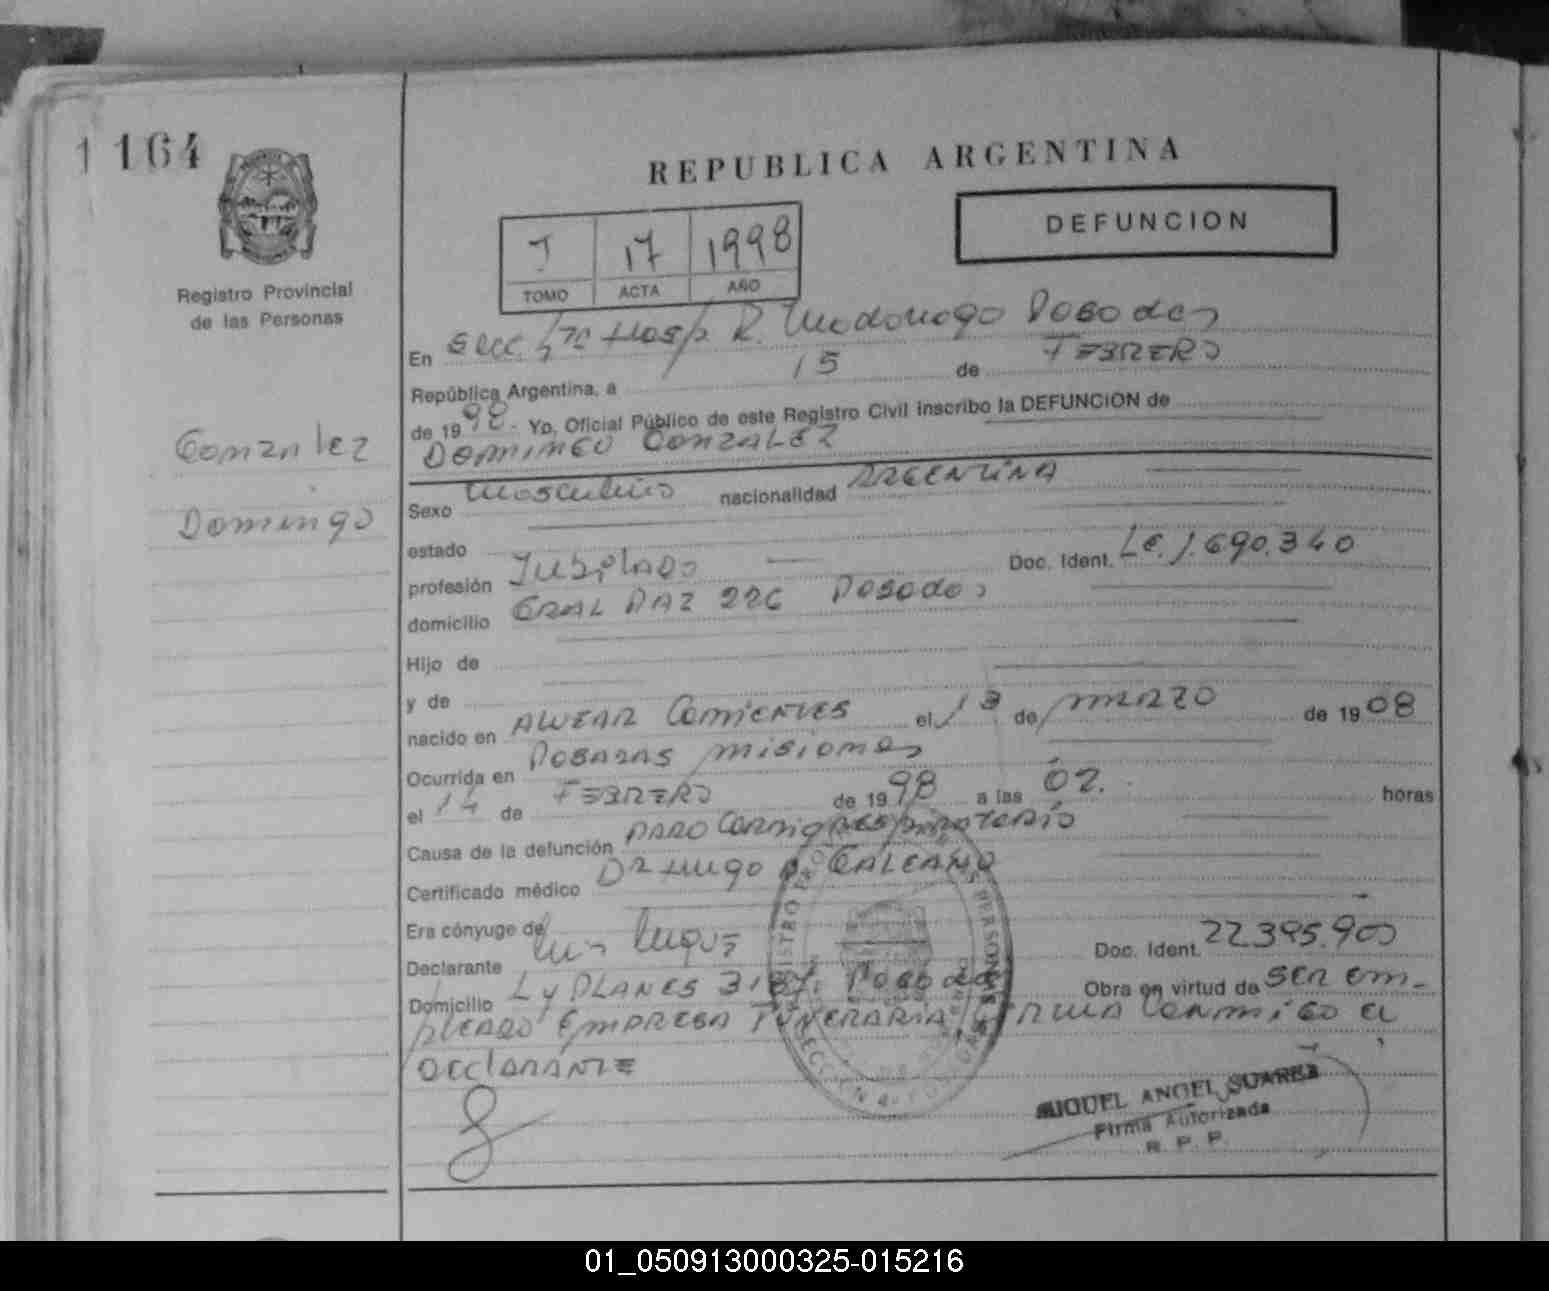 1 164
REPUBLICA ARGENTINA
DEFUNCION
J 17 1998
TOMO ACTA AÑO
Registro Provincial
de las Personas
En Secc. Hosp. R. Madariaga Posadas
República Argentina, a 15 de FEBRERO
de 1998. Yo, Oficial Público de este Registro Civil inscribo la DEFUNCION de
Gonzalez
DOMINGO GONZALEZ
Domingo
Sexo masculino nacionalidad ARGENTINA
estado
profesión Jubilado Doc. Ident. Le. 1.690.340
domicilio GRAL PAZ 226 Posadas
Hijo de
y de
nacido en ALVEAR Corrientes el 13 de MARZO de 1908
Ocurrida en POSADAS misiones
el 14 de FEBRERO de 1998 a las 02. horas
Causa de la defunción PARO CARDIORESPIRATORIO
Certificado médico Dr Hugo GALEANO
Era cónyuge de
Declarante Luis Luque Doc. Ident. 22.395.900
Domicilio L y PLANES 3187. Posadas Obra en virtud de ser em-
pleado EMPRESA FUNERARIA, FIRMA conmigo el
declarante
MIGUEL ANGEL SUAREZ
Firma Autorizada
R. P. P.
01_050913000325-015216